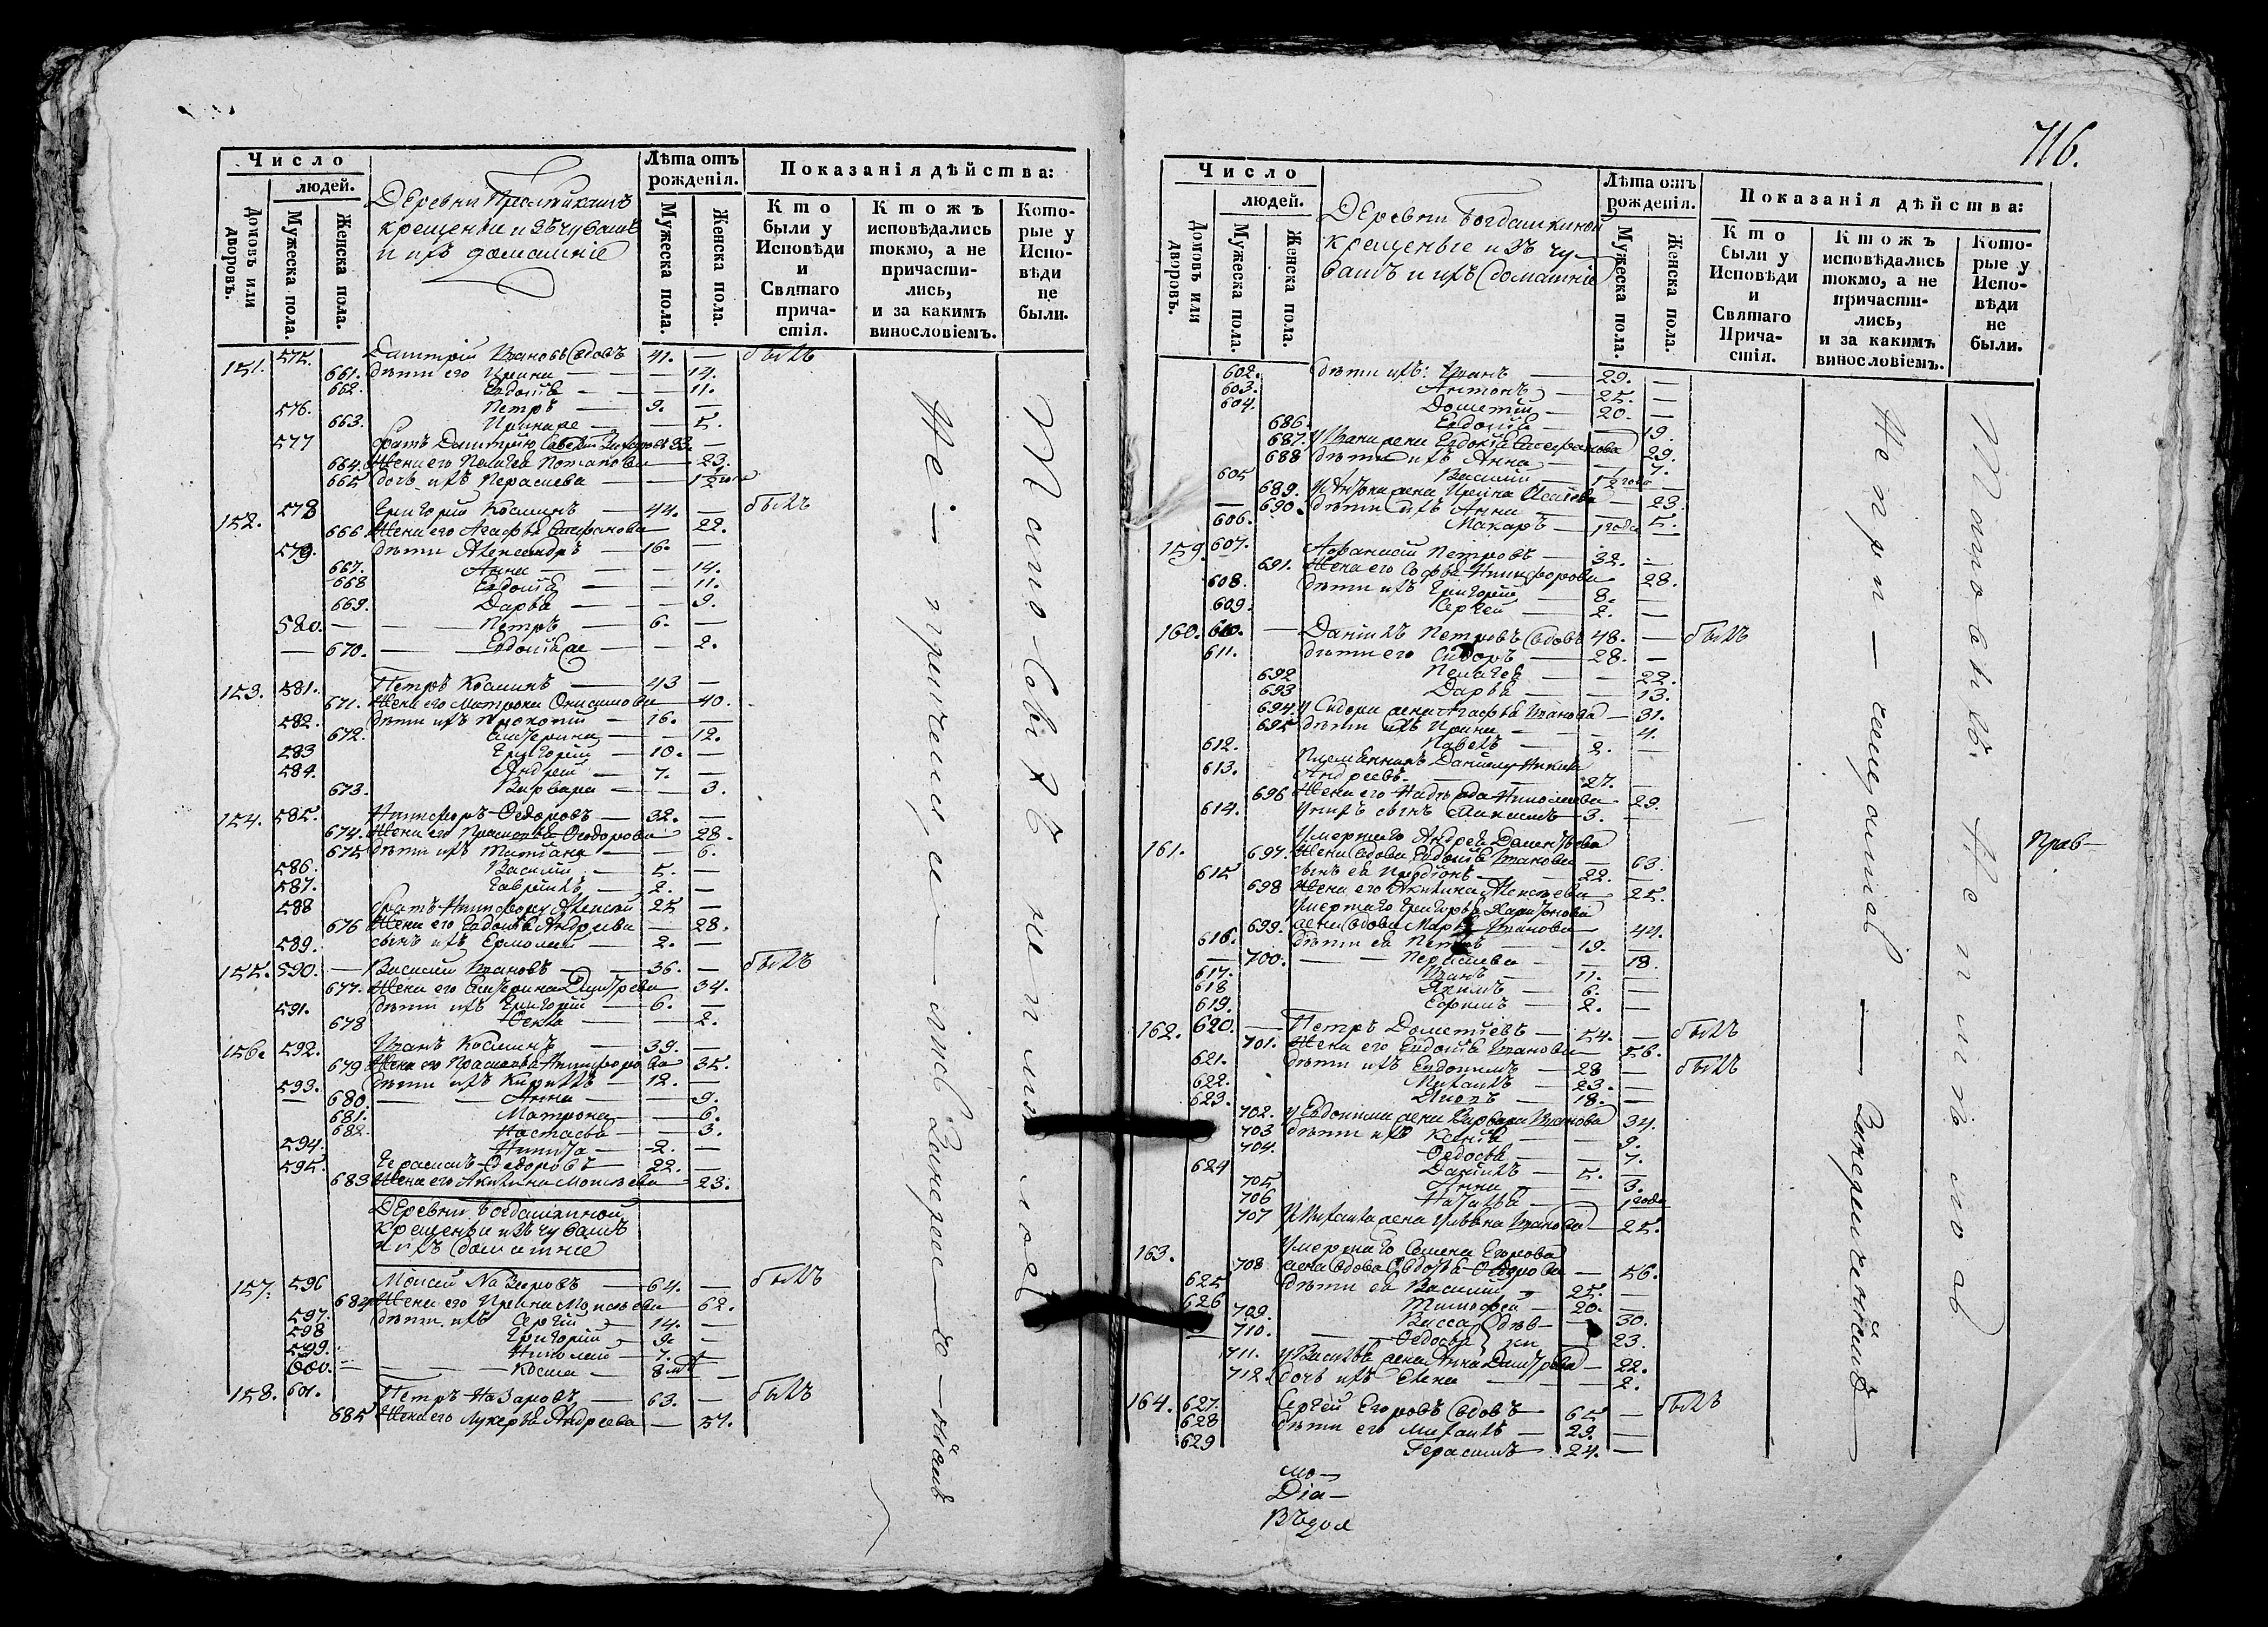 Число
людей.
Домовъ или дворовъ.
Мужеска пола.
Женска пола.
Деревни
крещеныи изъ чувашъ
и ихъ домашніе
Лѣта отъ рожденія.
Мужеска пола.
Женска пола.
Показанія дѣйства:
Кто были у Исповѣди и Святаго причастія.
Ктожъ исповѣдались токмо, а не причастились, и за какимъ винословіемъ.
Которые у Исповѣди не были.
151. 575. Дмитрій Ивановъ вдовъ 41. — былъ
661. дѣти его Ирина — 14.
662. Евдокія — 11.
576. Петръ — 9. —
663. — 5.
577 братъ Дмитрію 33. —
664. Жена его Пелагея Потапова — 23.
665 дочь ихъ Параскева — 1½
152. 578 Григорій Косминъ — 44. — былъ
666 Жена его Агафья Степанова — 22.
579. дѣти Александръ — 16. —
667. Анна — 14.
668 Евдокія — 11.
669. Дарья — 9.
580. — Петръ — 6. —
670. — Евдокія — 2.
153. 581. Петръ Косминъ — 43 —
671. Жена его Матрона Онисимова — 40.
582. дѣти ихъ Прокопій — 16. —
672. Катерина — 12.
583 Григорій — 10. —
584. Андрей — 7. —
673. Варвара — 3.
154. 585. Никифоръ Ѳедоровъ — 32. —
674. Жена его Прасковья Ѳеодорова — 28.
675 дѣти ихъ Татіана — 6.
586. Василій — 5. —
587. Гавріилъ — 2. —
588 братъ Никифору Алексѣй 25 —
676 Жена его Евдокія Андреева — 28.
589. сынъ ихъ Ермолай — 2. —
155. 590. — Василій Ивановъ — 36. — былъ
677. Жена его Катерина Дмитрева — 34.
591. дѣти ихъ Григорій — 6. —
678 Ѳекла — 2.
156. 592. Иванъ Косминъ — 39. —
679 Жена его Прасковья Никифорова 35.
593. дѣти ихъ Кириллъ — 12. —
680. — Анна — 9.
681. Матрона — 6.
682. Настасья — 3.
594. Никита — 2. —
595. Герасимъ Ѳедоровъ — 22. —
683 Жена его Акилина Моисѣева — 23.
Деревни Богдашкиной
крещеныи изъ чувашъ
и ихъ домашніе
157. 596 Моисей Назаровъ — 64. — былъ
684 Жена его Ирина Моисѣева 62.
597. дѣти ихъ Сергій — 14. —
598 Григорій — 9. —
599. Николай — 7. —
600. — Косма — 8 —
158. 601. Петръ Назаровъ — 63. — былъ
685 Жена его Лукерья Андреева — 57.
716.
Число
людей.
Домовъ или дворовъ.
Мужеска пола.
Женска пола.
Деревни Богдашкиной
крещеные изъ чу-
вашъ и ихъ домашніе
Лѣта отъ рожденія.
Мужеска пола.
Женска пола.
Показанія дѣйства:
Кто были у Исповѣди и Святаго Причастія.
Ктожъ исповѣдались токмо, а не причастились, и за какимъ винословіемъ.
Которые у Исповѣди не были.
602. дѣти ихъ: Иванъ — 29. —
603. Антонъ — 25. —
604. Дометій — 20. —
686. Евдокія — 19.
687. у Ивана жена Евдокія Степанова 29.
688 дѣти ихъ Анна — 7.
605 Василій — 1½ года —
689. у Антона жена Ирина Исаева — 23.
— 690. дѣти ихъ Анна — 5.
606. Макаръ — 1 года —
159. 607. Аѳанасій Петровъ — 32. —
691. Жена его Софья Никифорова 28.
608. дѣти ихъ Григорій — 8. —
609. Сергей — 2. —
160. 610. — Даніилъ Петровъ вдовъ 48. — былъ
611. дѣти его Сидоръ — 28. —
692 Пелагея — 22.
693 Дарья — 13.
694. у Сидора жена Агафья Иванова — 31.
695 дѣти ихъ Ирина — 4.
612. Павелъ — 2. —
613. Племянникъ Даниилу Никита
Андреевъ — 27. —
696 Жена его Надежда Николаева 29.
614. у нихъ сынъ Максимъ 3. —
161. Умершаго Андрея
697. Жена вдова Евдокія Иванова — 63.
615 сынъ ея Иродіонъ — 22. —
698 Жена его Акилина Алексѣева 25.
Умершаго Григорья Харитонова
699. жена вдова Марья Иванова 44.
616. дѣти ея Петръ — 19. —
— 700. — Параскева — 18.
617. Иванъ — 11. —
618 Якимъ — 6. —
619. Ефимъ — 2. —
162. 620. — Петръ Дометіевъ — 54. — былъ
701. Жена его Евдокія Иванова 56.
621. дѣти ихъ Евдокимъ — 28 — былъ
622. Михаилъ — 23. —
623. — 18. —
702. у Евдокима жена Варвара Иванова 34.
703 дѣти ихъ Ксенія — 9.
704. Ѳедосья — 7.
624 Даніилъ — 5. —
705 Анна — 3.
706 Наталья — 1 года
707 у Михаила жена Ульяна Иванова 25.
163. Умершаго Семена Егорова
708 жена вдова Ѳедорова — 56.
625 дѣти ея Василій — 25. —
626 Тимофей — 20. —
709. Васса дѣв- — 30.
— 710. — Ѳедосья ки 23.
711. у Василья жена Анна Дмитрева 22.
712. дочь ихъ Елена — 2.
164. 627. Сергей Егоровъ вдовъ 65 — былъ
628 дѣти его Михаилъ — 29. —
629 Герасимъ 24. —